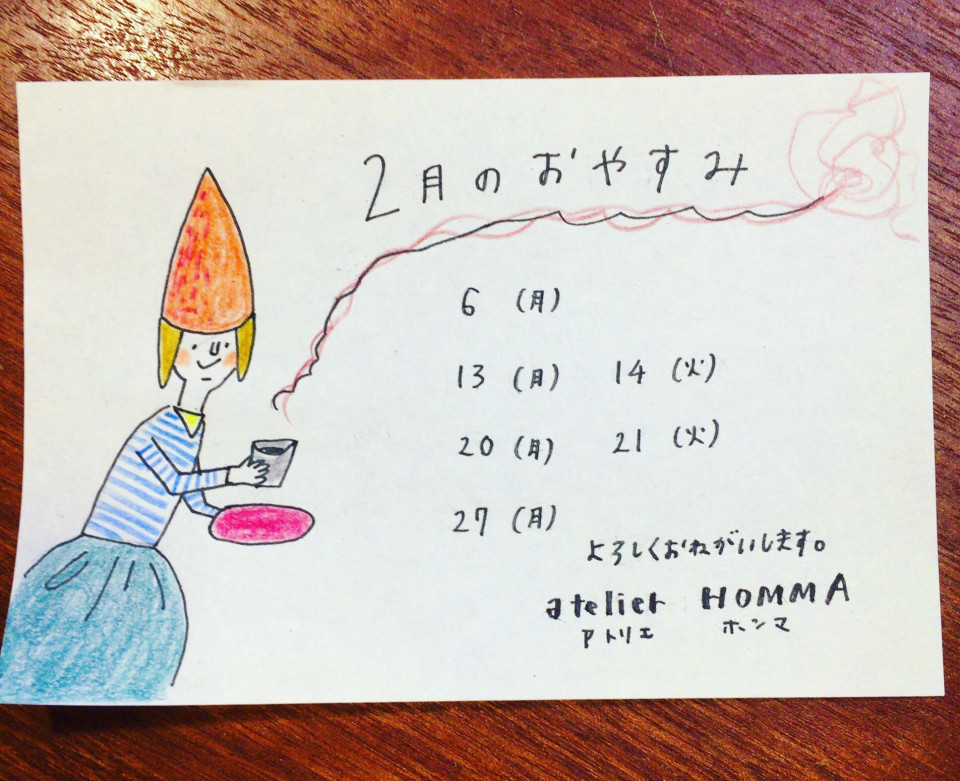 2月のおやすみ
6 (月)
13 (月) 14 (火)
20 (月) 21 (火)
27 (月)
よろしくおねがいします。
atelier HOMMA
アトリエ ホンマ